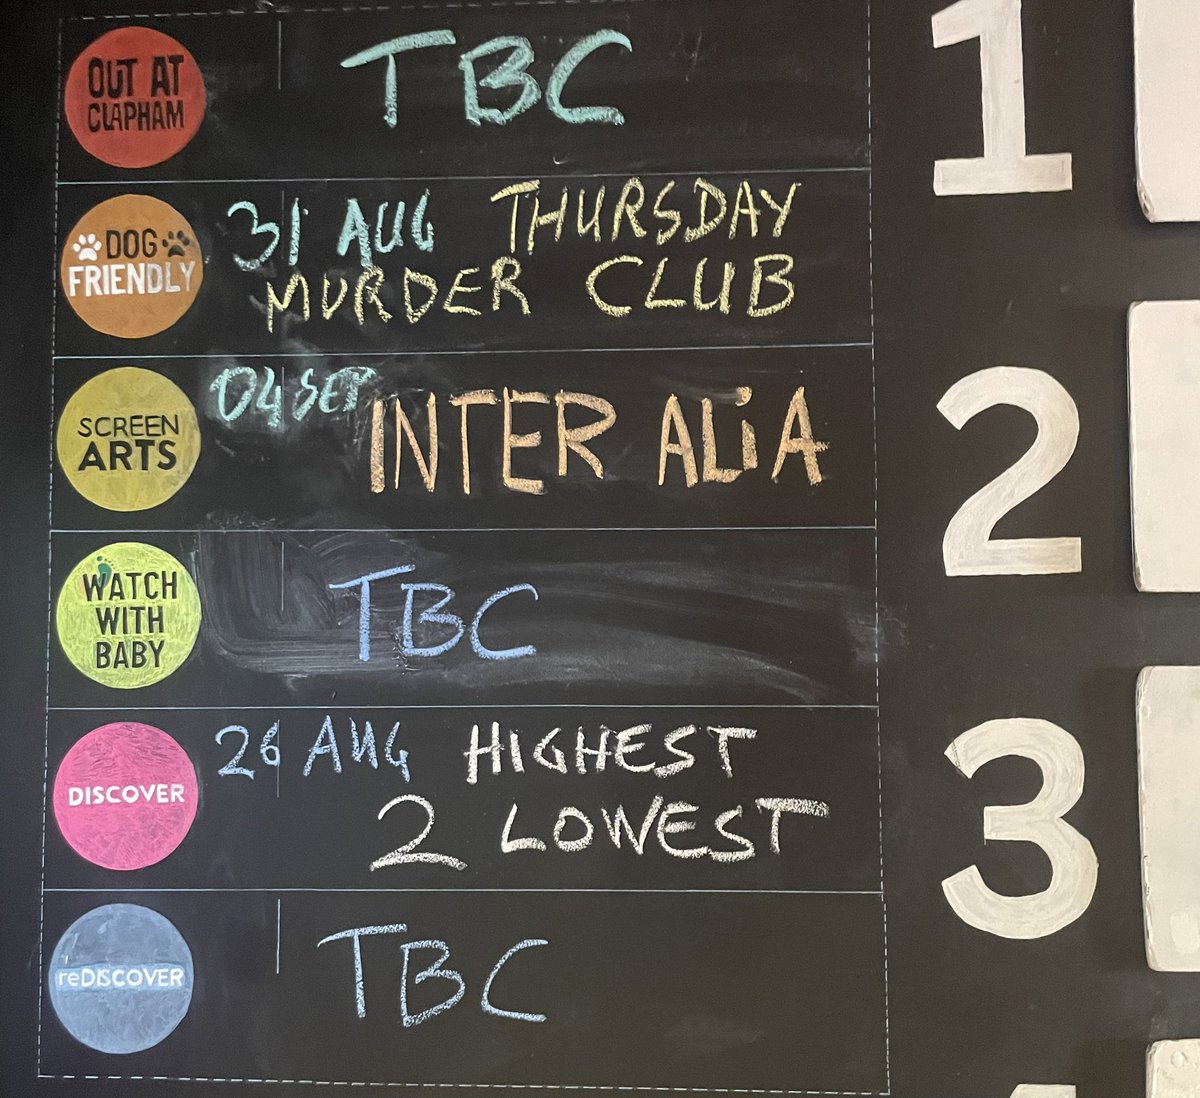 OUT AT
CLAPHAM
TBC
DOG
FRIENDLY
31 AUG THURSDAY
MURDER CLUB
SCREEN
ARTS
04 SEP INTER ALiA
WATCH
WITH
BABY
TBC
DISCOVER
26 AUG HIGHEST
2 LOWEST
reDISCOVER
TBC
1
2
3